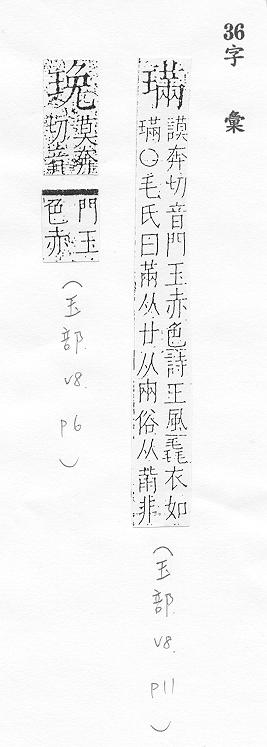 36
字彙
璊
謨奔切音門玉赤色詩王風毳衣如
璊○毛氏曰㒼从廿从兩俗从䓣非
(玉部 v8. p11)
玧
謨奔
切音
門玉
色赤
(玉部 v8. p6)